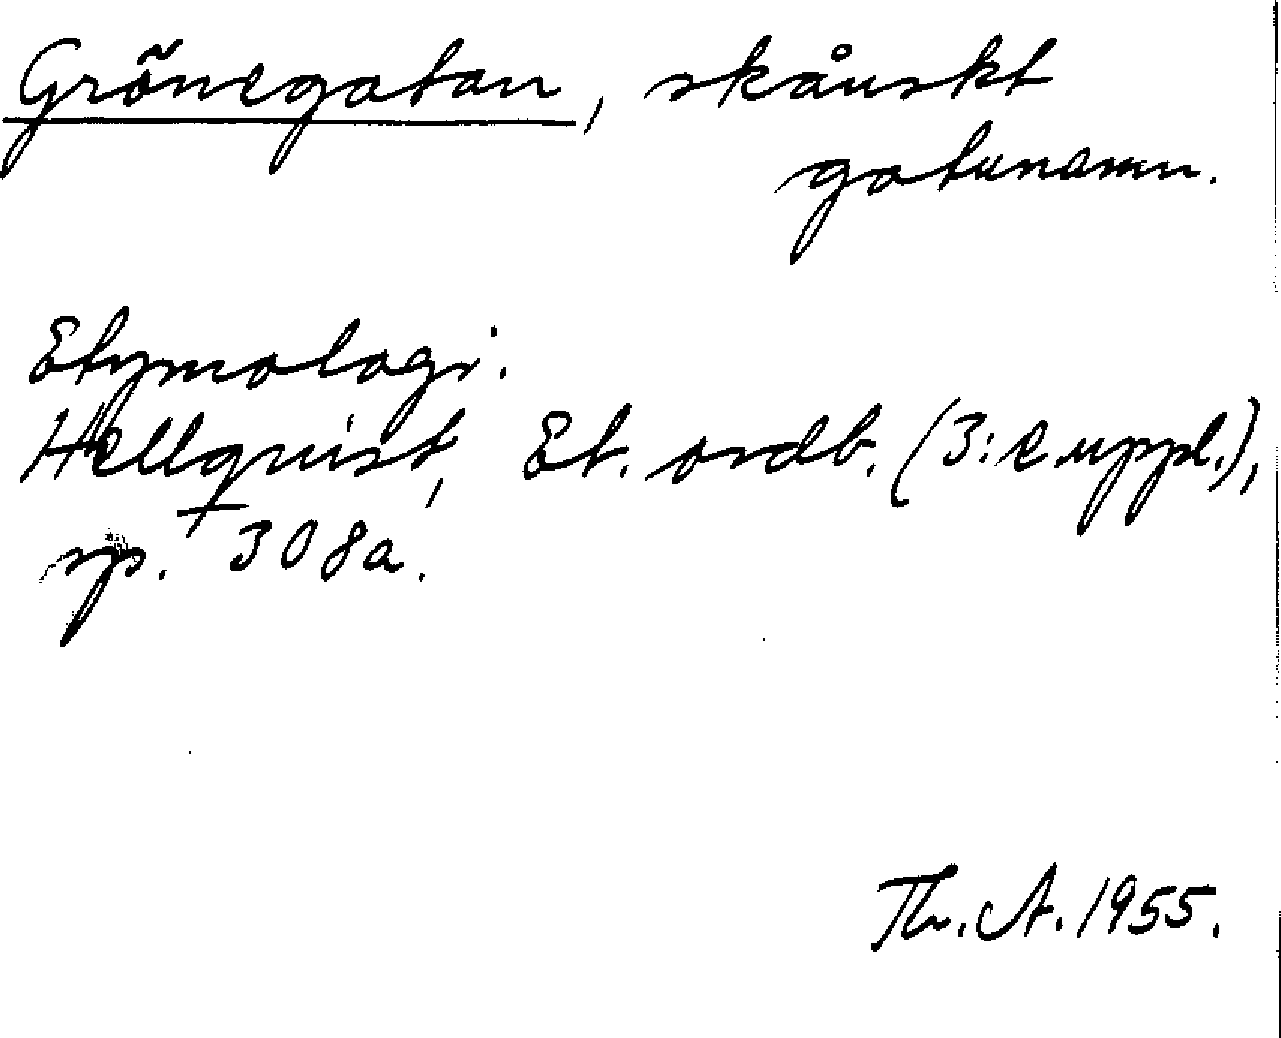 Grönegatan, skånskt
gatunamn.
Etymologi.
Hellquist, Et. ordb. (3:e uppl.),
sp. 308a.
Th. A. 1955.